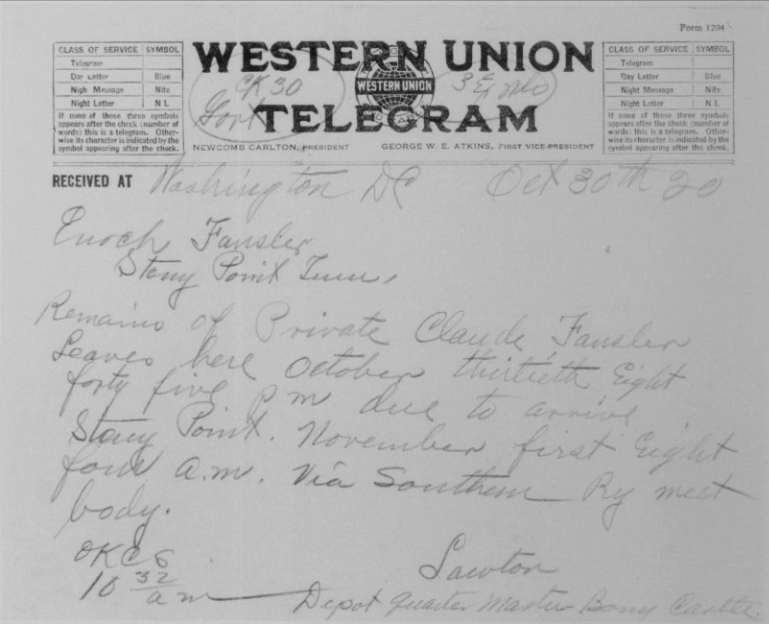 Form 1204
CLASS OF SERVICE SYMBOL
Telegram
Day Letter Blue
Night Message Nite
Night Letter N L
If none of these three symbols
appears after the check (number of
words) this is a telegram. Other-
wise its character is indicated by the
symbol appearing after the check.
WESTERN UNION
WESTERN UNION
TELEGRAM
CK 30
Govt
NEWCOMB CARLTON, PRESIDENT GEORGE W. E. ATKINS, FIRST VICE-PRESIDENT
CLASS OF SERVICE SYMBOL
Telegram
Day Letter Blue
Night Message Nite
Night Letter N L
If none of these three symbols
appears after the check (number of
words) this is a telegram. Other-
wise its character is indicated by the
symbol appearing after the check.
RECEIVED AT Washington DC Oct 30th 20
Enoch Fansler
Stony Point Tenn,
Remains of Private Claude Fansler
Leaves here October thirtieth Eight
forty five p m due to arrive
Stony Point. November first Eight
four a.m. Via Southern Ry meet
body.
OKCS
10 32 a m
Lawton
Depot Quarter Master Castle